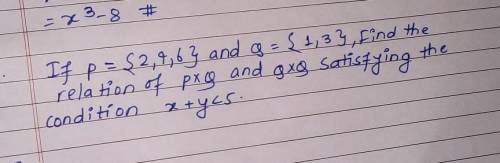 = x³-8 #
If P = {2,4,6} and Q = {1,3}, find the
relation of P×Q and Q×Q satisfying the
condition x+y<5.